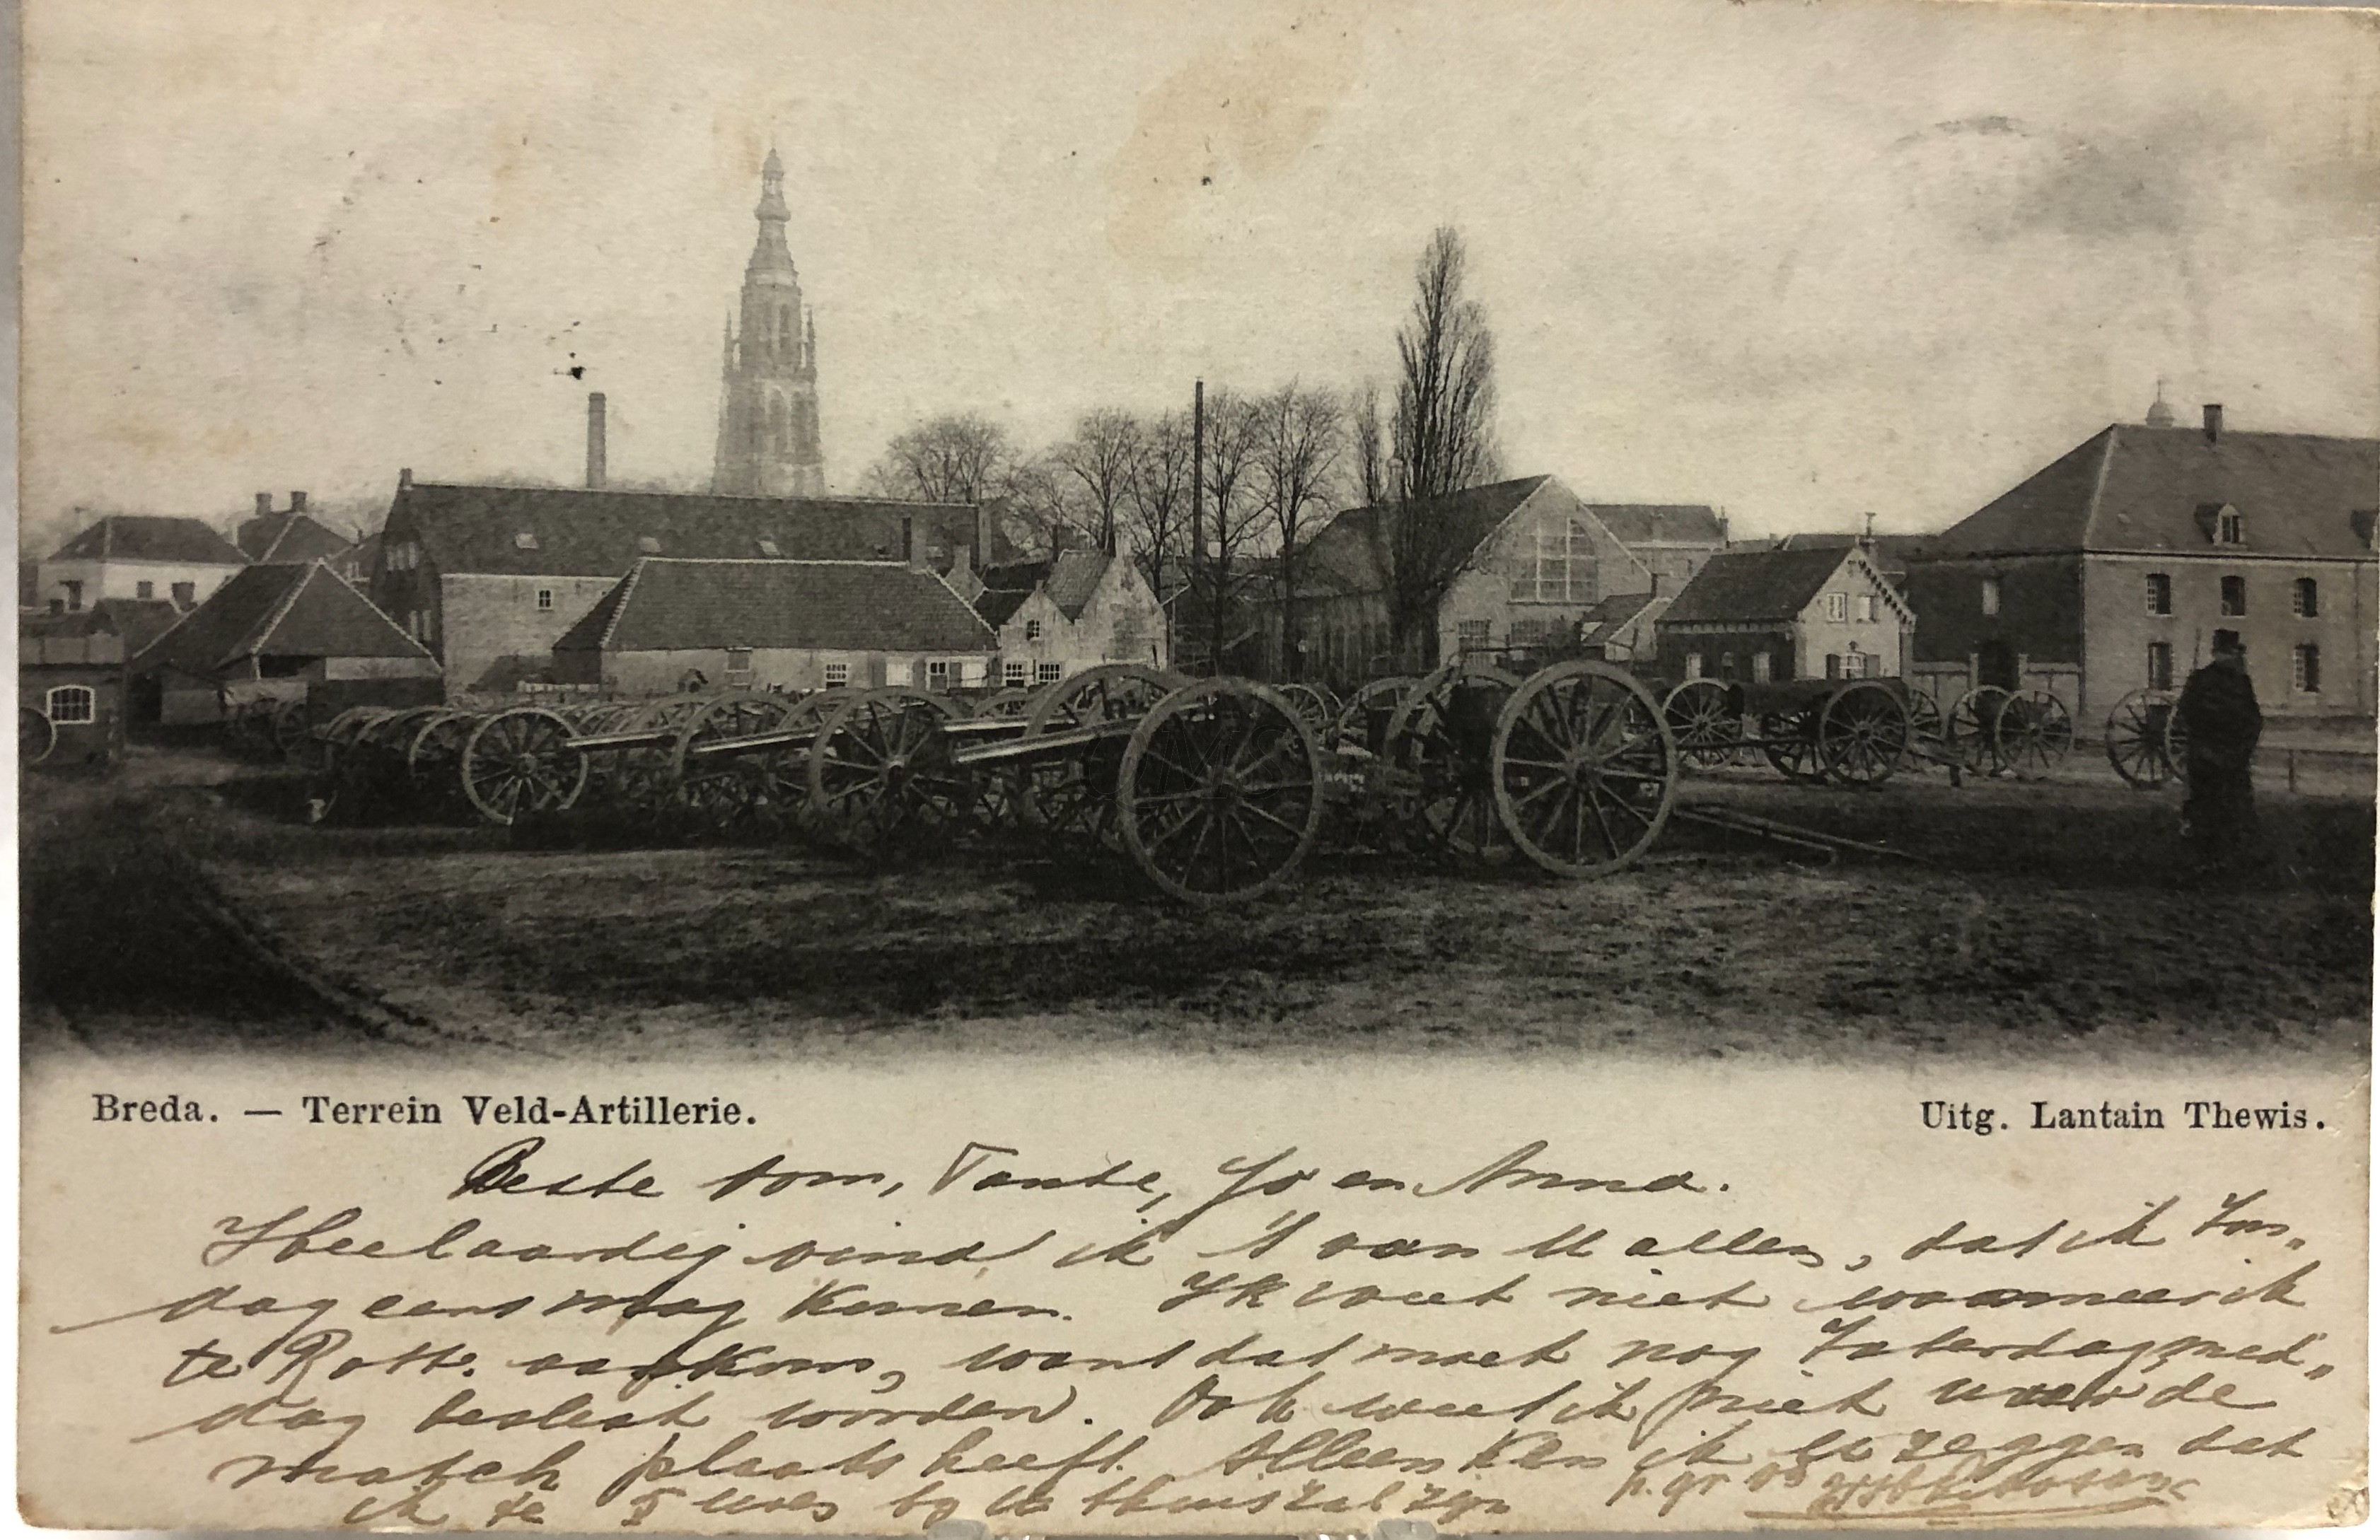 Breda. — Terrein Veld-Artillerie.
Uitg. Lantain Thewis.
Beste Oom, Tante, Jo en Anna.
Heel aardig vind ik 't van U allen, dat ik Zon„
dag eens mag komen. Ik weet niet wanneer ik
te Rott. aankom, want dat moet nog Zaterdagmid„
dag beslist worden. Ook weet ik niet waar de
match plaats heeft. Alleen kan ik U zeggen dat
ik te 5 uur bij U thuis zal zijn